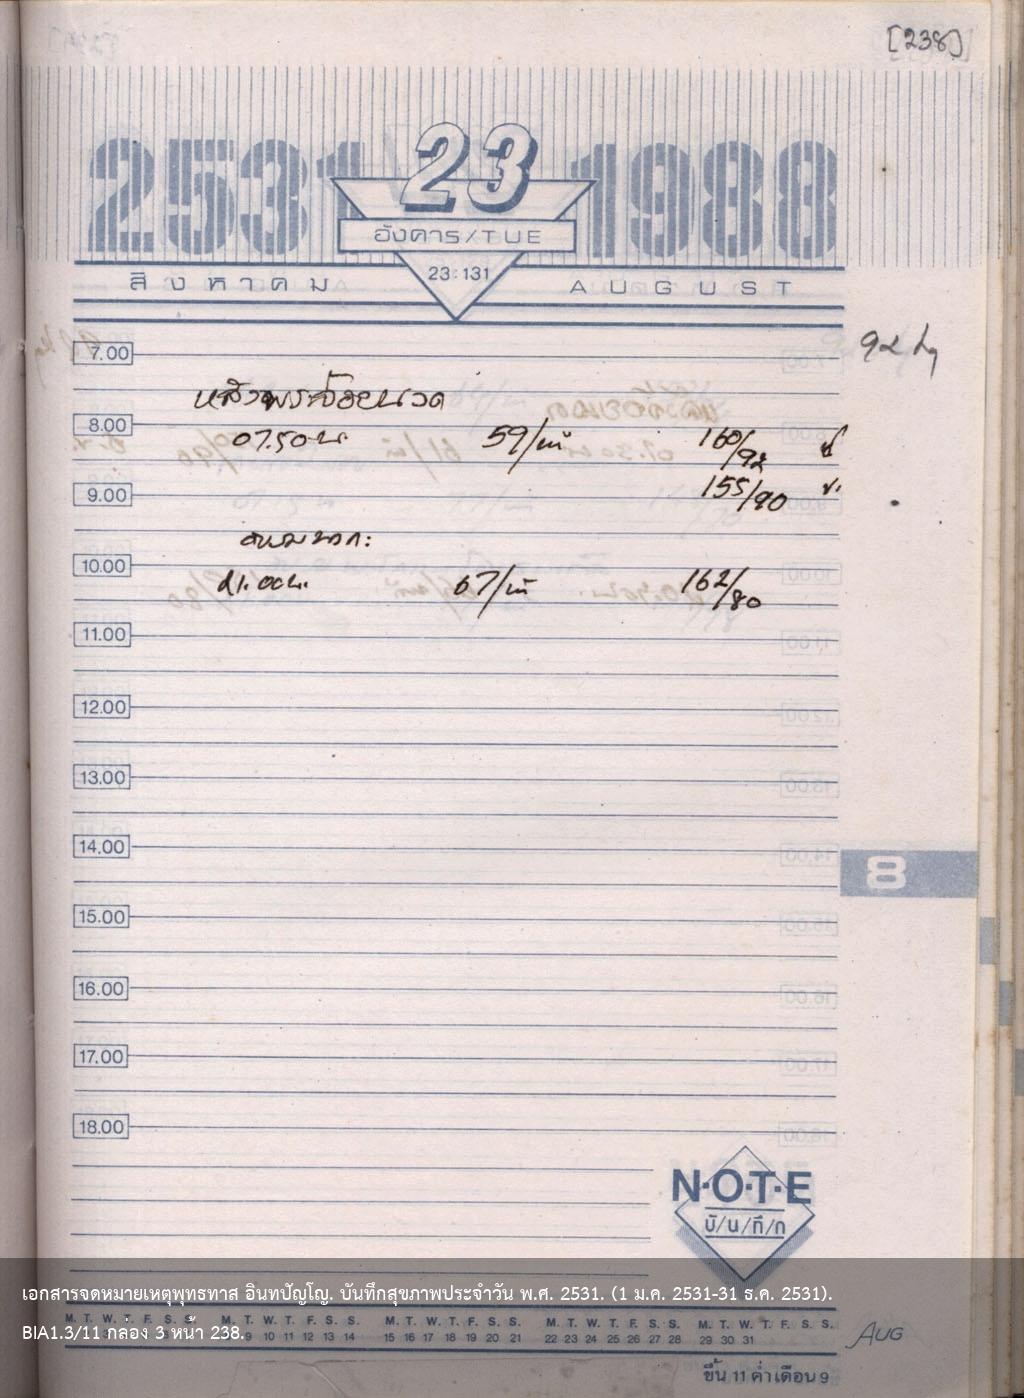 [238]
2531 23 1988
อังคาร/TUE
23:131
สิงหาคม AUGUST
7.00
92 kg
หลังพระจ้อยนวด
8.00
07.50 น 59/น 160/92
9.00
155/90
10.00
67/น 162/80
11.00
12.00
13.00
14.00
8
15.00
16.00
17.00
18.00
N·O·T·E
บั/น/ทึ/ก
เอกสารจดหมายเหตุพุทธทาส อินทปัญโญ. บันทึกสุขภาพประจำวัน พ.ศ. 2531. (1 ม.ค. 2531-31 ธ.ค. 2531).
M. T. W. T. F. S. S. M. T. W. T. F. S. S. M. T. W. T. F. S. S. M. T. W. T. F. S. S. M. T. W. T. F. S. S.
BIA1.3/11 กล่อง 3 หน้า 238.
9 10 11 12 13 14 15 16 17 18 19 20 21 22 23 24 25 26 27 28 29 30 31
AUG
ขึ้น 11 ค่ำ เดือน 9